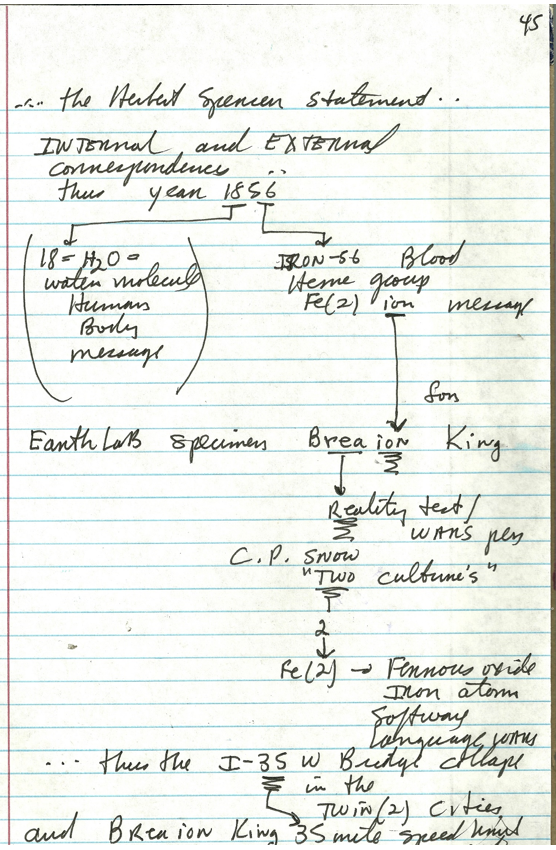 45
.... the Herbert Spencer statement ..
INTERNAL and EXTERNAL
correspondences ..
thus year 1856
18 = H2O =
water molecule
Humans
Body
message
IRON-56 Blood
Heme group
Fe(2) ion message
for
Earth Lab specimens Breaion King
Reality test /
WARS
C.P. SNOW
"TWO culture's"
2
Fe(2) → Ferrous oxide
Iron atom
Software
Language WARS
... thus the I-35 W Bridge collapse
in the
TWIN(2) Cities
and Breaion King 35 mile speed limit